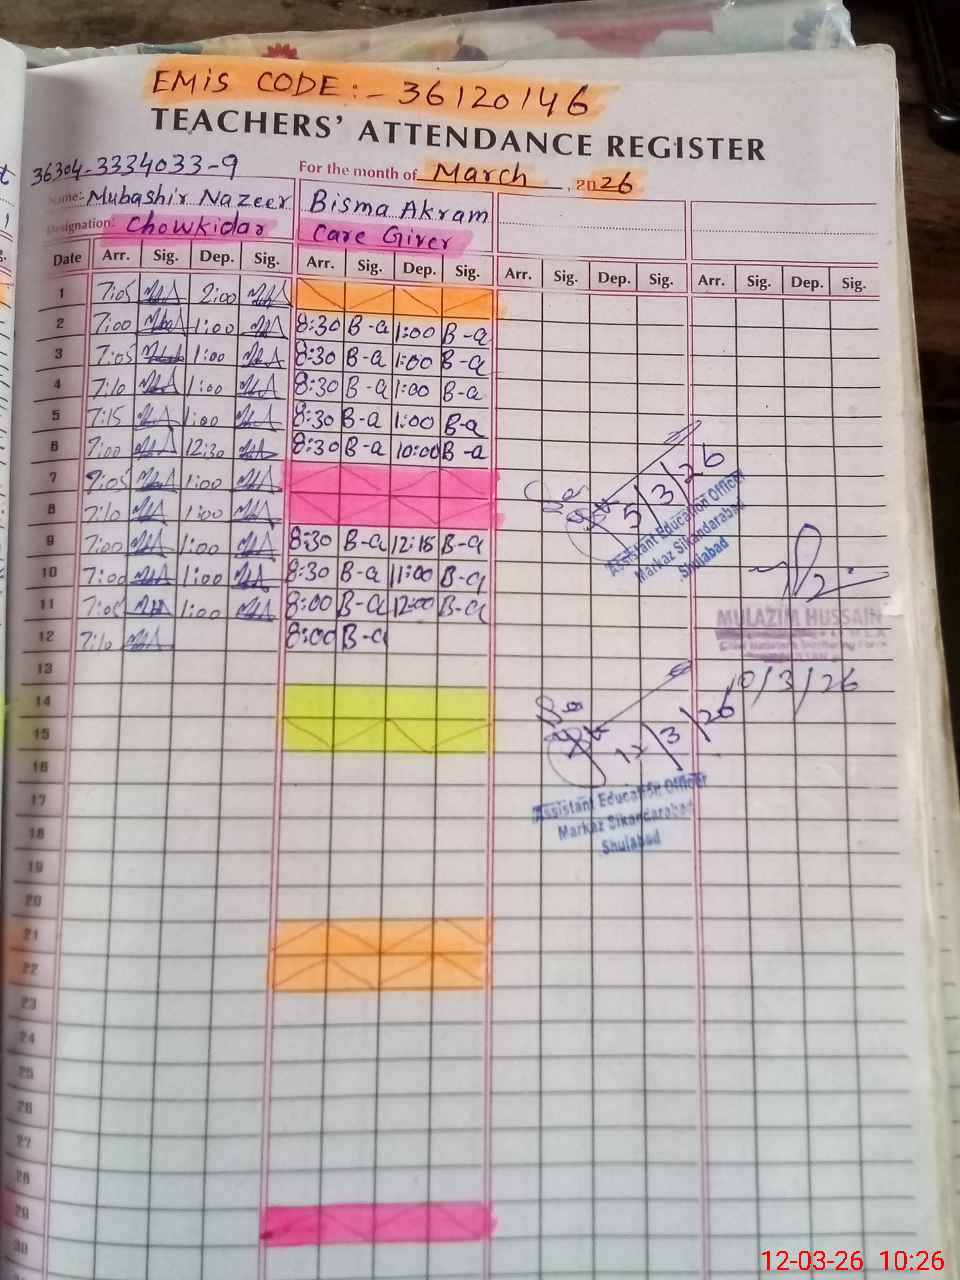 EMIS CODE:- 36120146
TEACHERS' ATTENDANCE REGISTER
36304-3334033-9
For the month of March, 2026
Name: Mubashir Nazeer Bisma Akram
Designation: Chowkidar Care Giver
Date Arr. Sig. Dep. Sig. Arr. Sig. Dep. Sig. Arr. Sig. Dep. Sig. Arr. Sig. Dep. Sig.
1 7:05 2:00
2 7:00 1:00 8:30 B-a 1:00 B-a
3 7:05 1:00 8:30 B-a 1:00 B-a
4 7:10 1:00 8:30 B-a 1:00 B-a
5 7:15 1:00 8:30 B-a 1:00 B-a
6 7:00 12:30 8:30 B-a 10:00 B-a
7 7:05 1:00
8 7:10 1:00
9 7:00 1:00 8:30 B-a 12:15 B-a
10 7:00 1:00 8:30 B-a 11:00 B-a
11 7:05 1:00 8:00 B-a 12:00 B-a
12 7:10 8:00 B-a
13
14
15
16
17
18
19
20
21
22
23
24
25
26
27
28
29
30
5/3/26
Assistant Education Officer
Markaz Sikandarabad
Shujabad
MULAZIM HUSSAIN
10/3/26
12/3/26
Assistant Education Officer
Markaz Sikandarabad
Shujabad
12-03-26 10:26